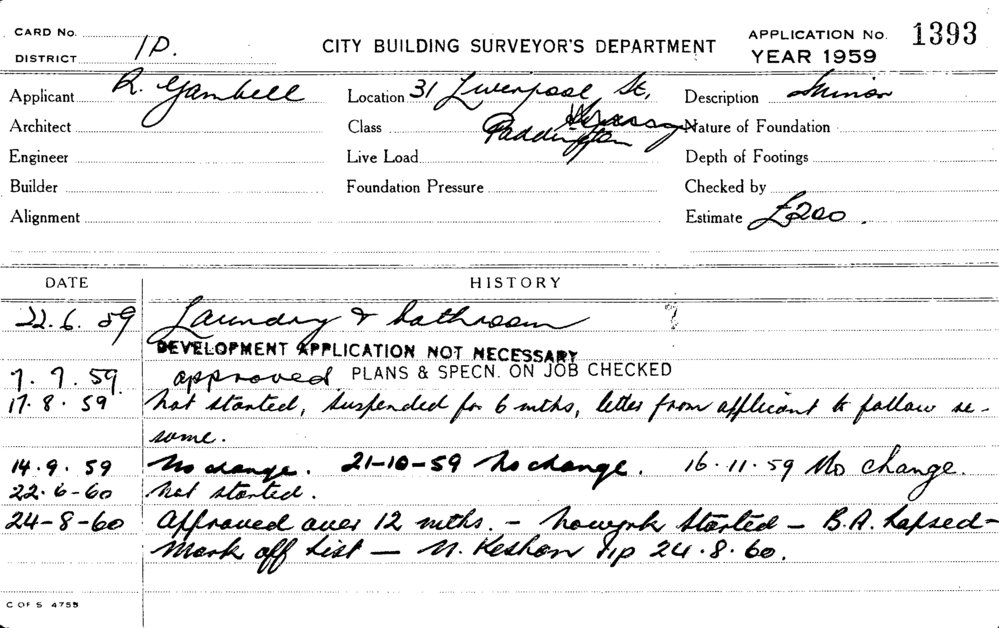 CARD No.
DISTRICT 1P.
CITY BUILDING SURVEYOR'S DEPARTMENT
APPLICATION No. 1393
YEAR 1959
Applicant R. Gambell Location 31 Liverpool St, Description Minor
Paddington
Architect Class Nature of Foundation
Engineer Live Load Depth of Footings
Builder Foundation Pressure Checked by
Alignment Estimate £200.
DATE HISTORY
22.6.59 Laundry & bathroom
DEVELOPMENT APPLICATION NOT NECESSARY
7.7.59. approved PLANS & SPECN. ON JOB CHECKED
17.8.59 Not started, suspended for 6 mths, letter from applicant to follow re-
same.
14.9.59 No change. 21-10-59 No change. 16.11.59 No change.
22.6-60 Not started.
24-8-60 Approved over 12 mths. - No work started - B.A. Lapsed-
Mark off List - 24.8.60.
C OF S 4755